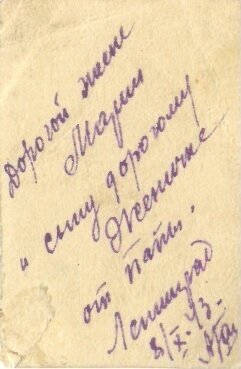 Дорогой жене
Марии
и сыну дорогому
Женичке
от папы.
Ленинград
8/X-43.